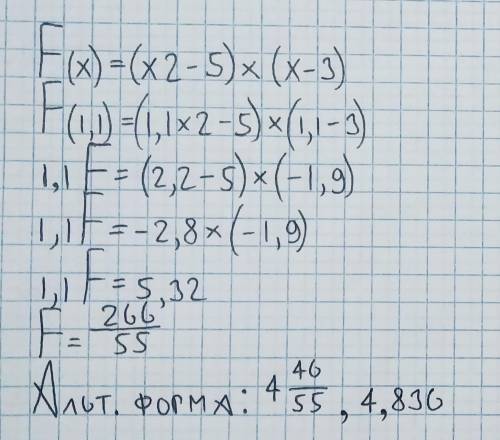 F(x)=(x2-5)×(x-3)
F(1,1)=(1,1×2-5)×(1,1-3)
1,1F=(2,2-5)×(-1,9)
1,1F=-2,8×(-1,9)
1,1F=5,32
F=266/55
Альт. форма: 4 46/55, 4,836